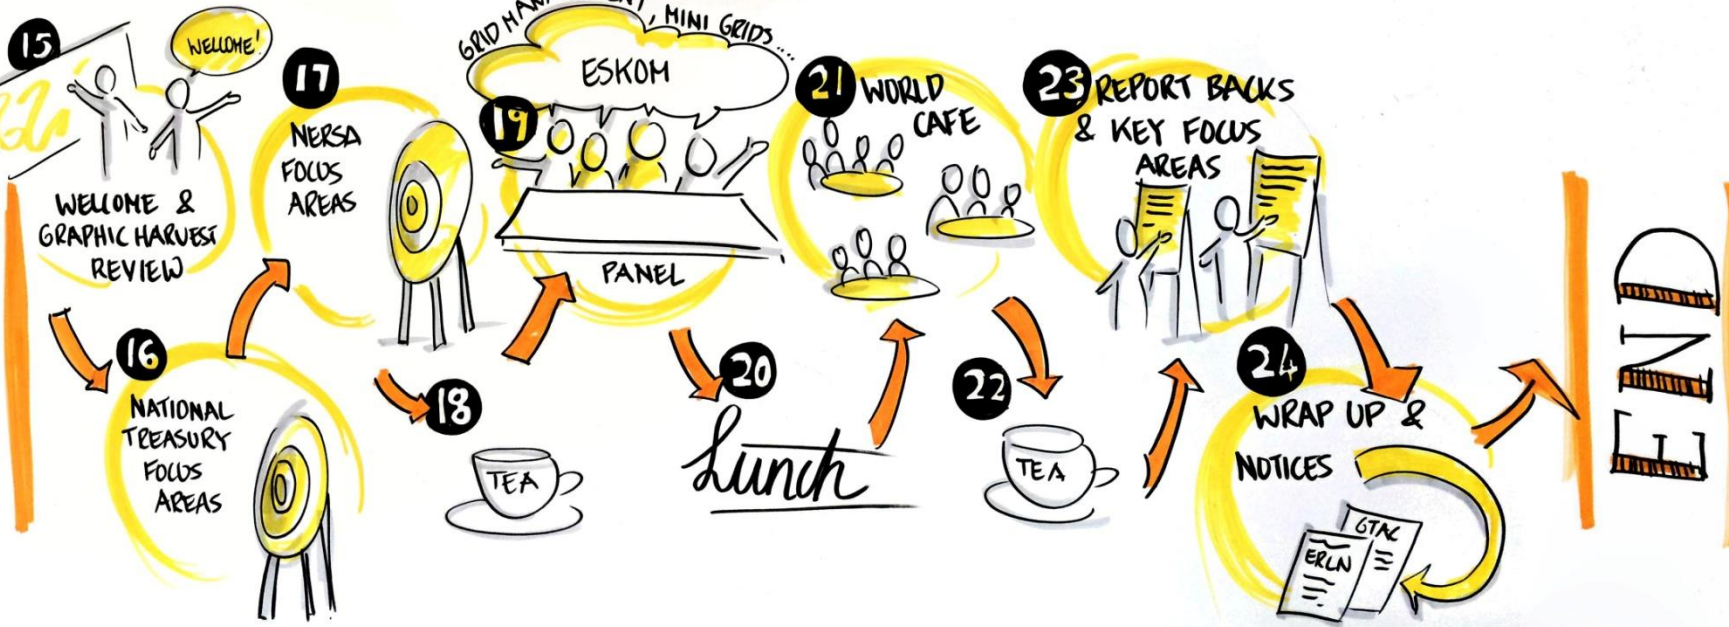 15
WELLOME!
WELLOME &
GRAPHIC HARVEST
REVIEW
16
NATIONAL
TREASURY
FOCUS
AREAS
17
NERSA
FOCUS
AREAS
18
TEA
GRID MANAGEMENT, MINI GRIDS....
ESKOM
19
PANEL
20
Lunch
21 WORLD
CAFE
22
TEA
23 REPORT BACKS
& KEY FOCUS
AREAS
24
WRAP UP &
NOTICES
GTAC
ERLN
END